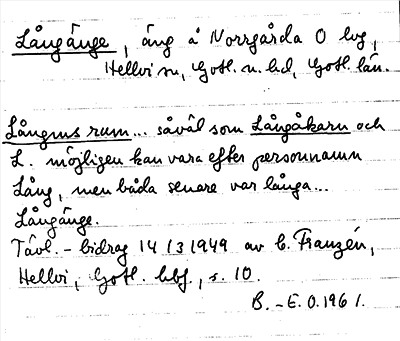 Långänge, äng å Norrgårda O lvg,
Hellvi sn, Gotl. n. hd, Gotl. län.
Långms rum... såväl som Långåkarn och
L. möjligen kan vara efter personnamn
Lång, men båda senare var långa...
Långänge.
Tävl. - bidrag 14/3 1949 av C. Franzén,
Hellvi, Gotl. hbf., s. 10.
B. - E. O. 1961.